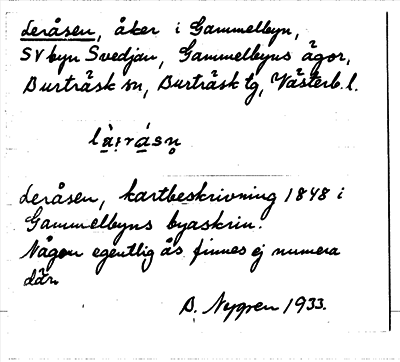 Leråsen, åker i Gammelbyn,
SV byn Svedjan, Gammelbyns ägor,
Burträsk sn, Burträsk tg, Västerb. l.
Leråsen, kartbeskrivning 1848 i
Gammelbyns byaskrin.
Någon egentlig ås finnes ej numera
där.
D. Nygren 1933.